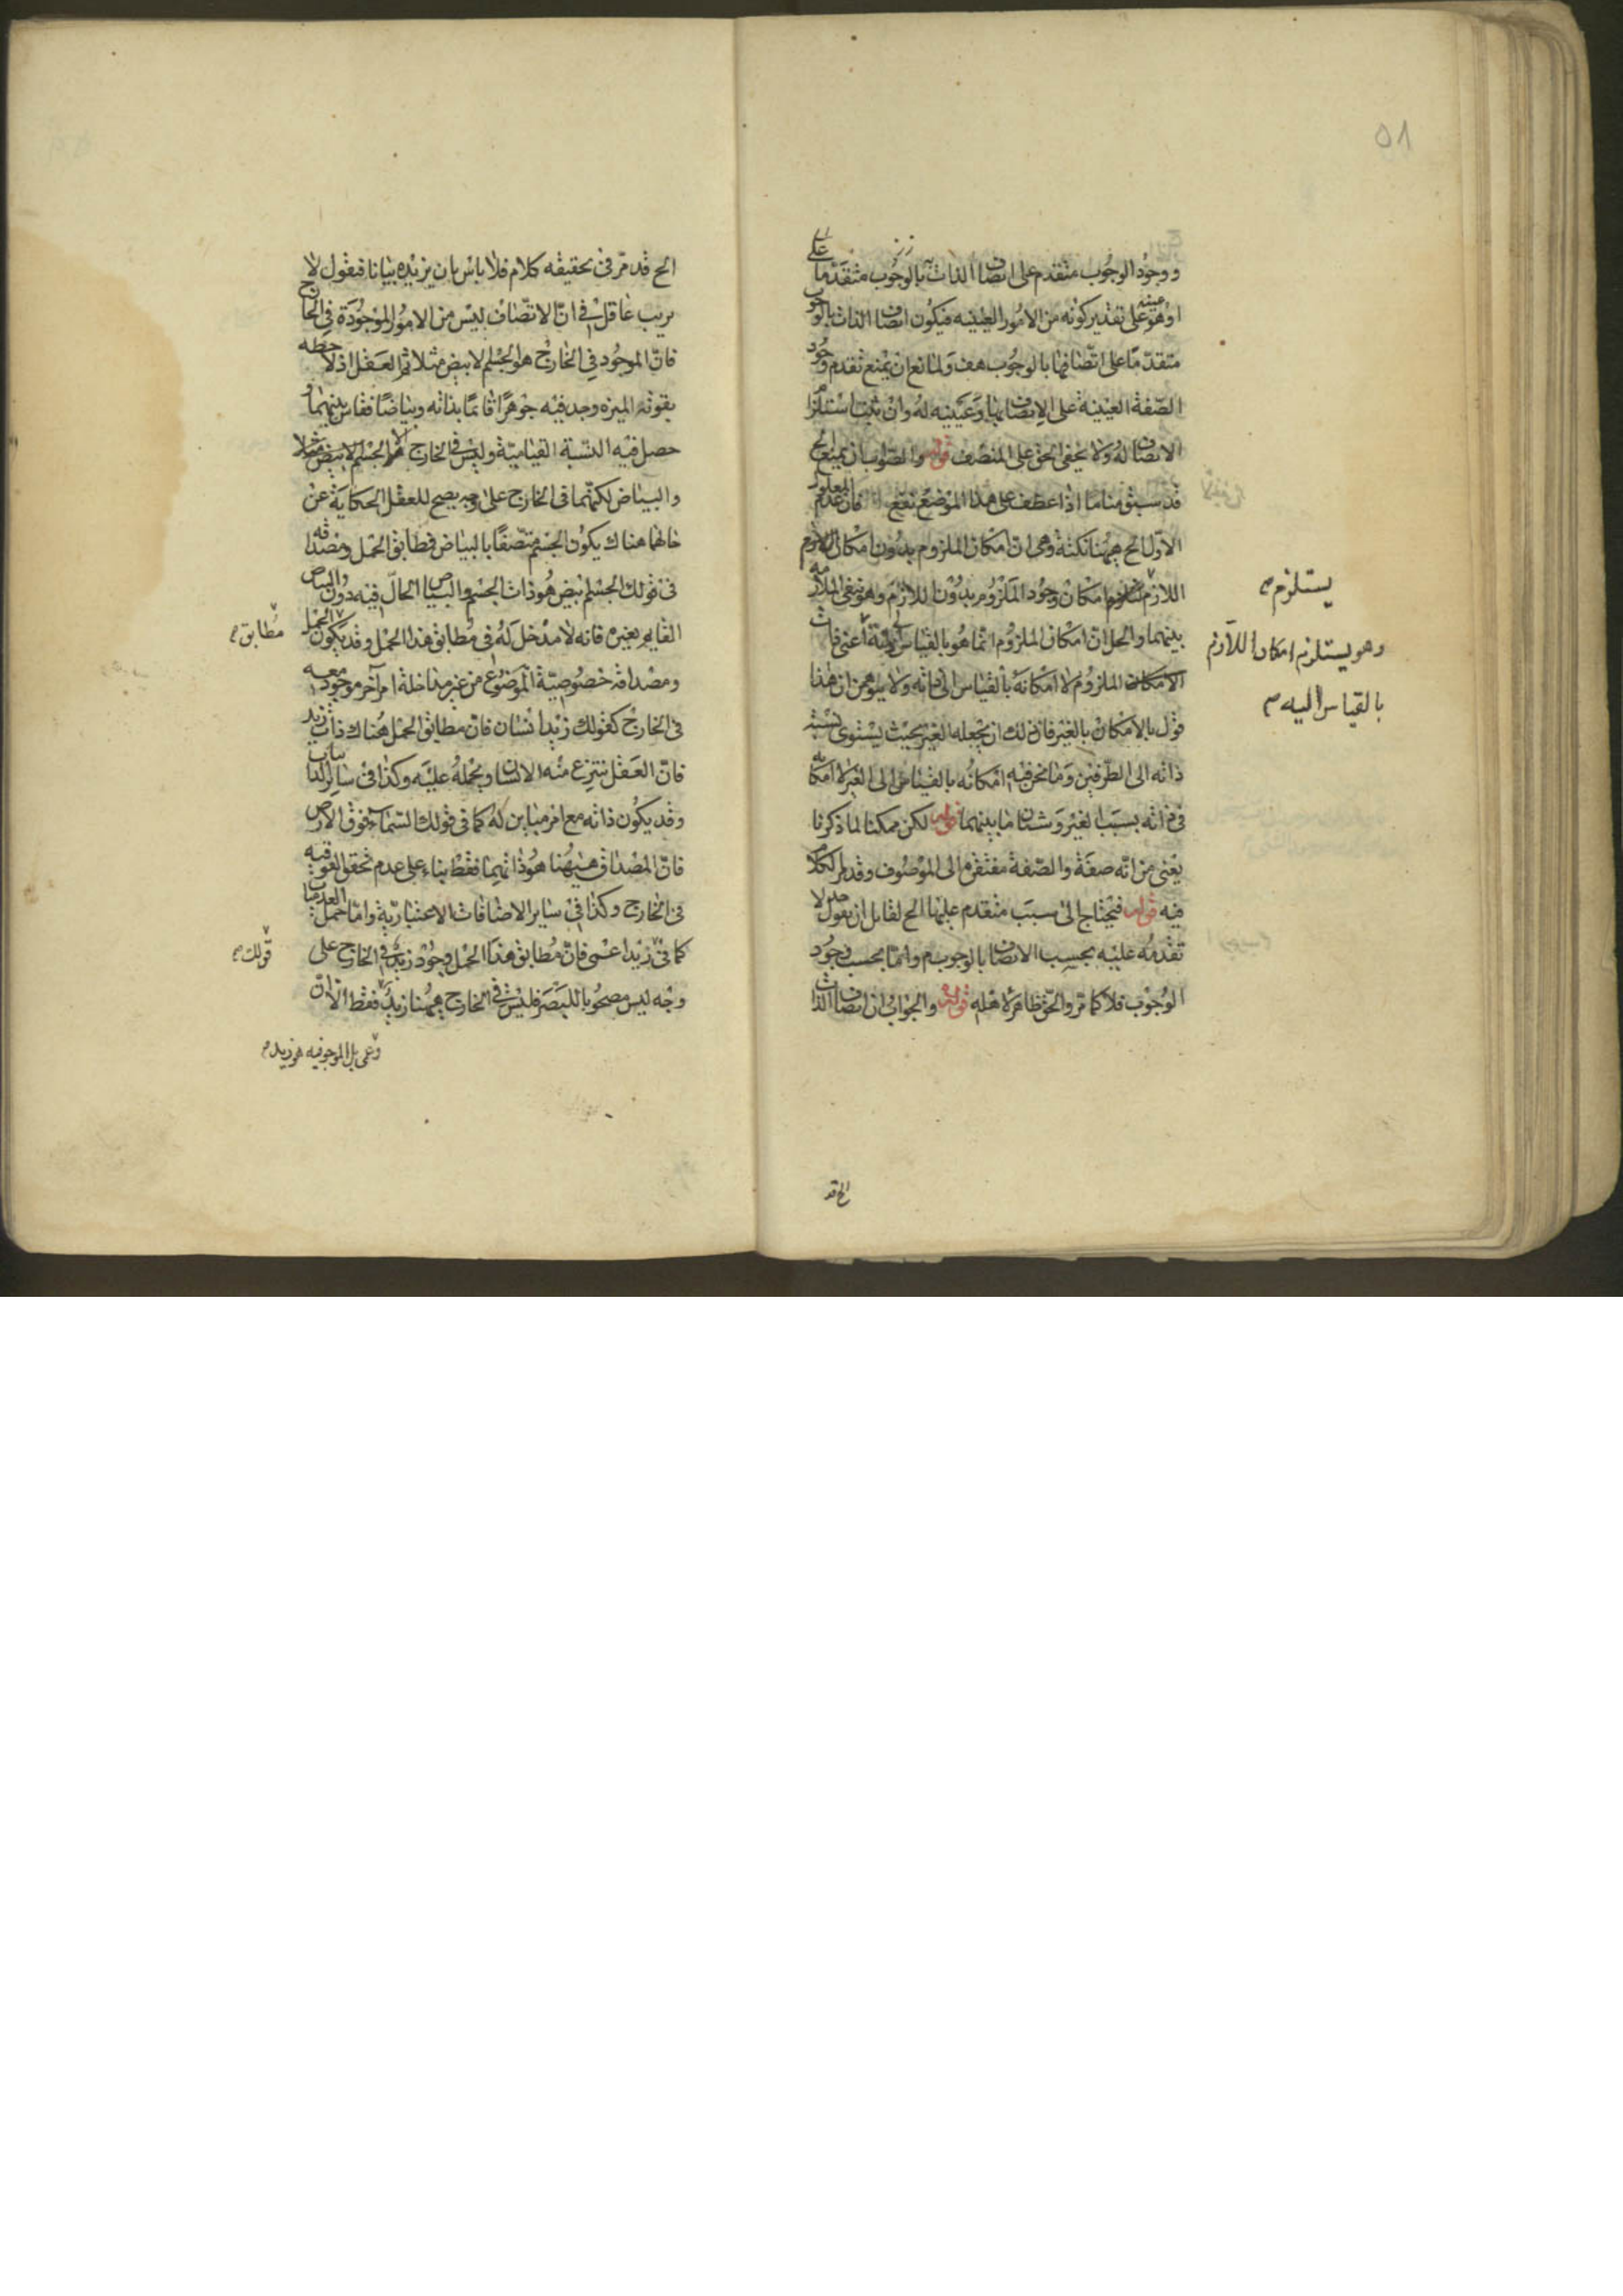 ٥٨
ووجود الوجوب متقدم على اتصاف الذات بالوجوب متقدما على
اذ هو عينه على تقدير كونه من الامور العينيه فيكون اتصاف الذات بالوجوب
متقدما على اتصافها بالوجوب هف ولمانع ان يمنع تقدم وجود
الصفة العينية على الاتصاف بها وعينيه له وان ثبت استلزام
الاتصاف له ولا يخفى الحق على المنصف قوله والصواب ان يمنع الخ
قد سبق منا ما اذا عطف على هذا الموضع نفع فان عدم المعلول
الاول الخ ههنا نكتة وهى ان امكان الملزوم بدون امكان اللازم
اللازم امكان وجود الملزوم بدون اللازم وهو ينفى الملازمه
بينهما والحل ان امكان الملزوم انما هو بالقياس الى ذاته اعنى ذات
الملزوم لا امكانه بالقياس الى ذاته ولا يتوهمن ان هذا
قول بالامكان بالغير فان ذلك ان يجعله الغير بحيث يستوى نسبة
ذاته الى الطرفين وما نحن فيه امكانه بالقياس الى الغير لا امكانه
فى ذاته بسبب الغير وشتان ما بينهما قوله لكن ممكنا لما ذكرنا
يعنى من انه صفة والصفة مفتقرة الى الموصوف وقد مر الكلام
فيه قوله فيحتاج الى سبب متقدم عليها الخ لقائل ان يقول لا
تقدمه عليه بحسب الاتصاف بالوجوب م وانما بحسب وجود
الوجوب فلا كما مر والحق ظاهر لاهله قوله والجواب ان اتصاف الذات
يستلزم صح
وهو يستلزم امكان اللازم
بالقياس اليه صح
الخ قد
الخ قد مر فى تحقيقه كلام فلا باس بان يزيده بيانا فيقول لا
يريب عاقل فى ان الاتصاف ليس من الامور الموجودة فى الخارج
فان الموجود فى الخارج هو الجسم الابيض مثلا ثم العقل اذ لاحظه
بقوته الميزه وجد فيه جوهرا قائما بذاته وبياضا فقاس بينهما و
حصل فيه النسبة القياميّة وليس فى الخارج الا الجسم الابيض مثلا
والبياض لكنهما فى الخارج على وجه يصح للعقل الحكاية عن
حالهما هناك يكون الجسم متصفا بالبياض فطابق الحمل ومصداقه
فى قولك الجسم ابيض هو ذات الجسم والبياض الحال فيه دون البياض
القايم بغيره فانه لا مدخل له فى مطابق هذا الحمل وقد يكون
ومصداقه خصوصية الموضوع من غير مداخلة امر آخر موجود معه
فى الخارج كقولك زيد انسان فان مطابق الحمل هناك ذات زيد
فان العقل ينتزع منه الانسان ويحمله عليه وكذا فى ساير الذاتيات
وقد يكون ذاته مع امر مباين له كما فى قولك السماء فوق الارض
فان المصداق ههنا هو ذاتهما فقط بناء على عدم تحقق الفوقيه
فى الخارج وكذا فى ساير الاضافات الاعتبارية واما حمل العدميات
كما فى زيد اعمى فان مطابق هذا الحمل وجود زيد فى الخارج على
وجه ليس مصحوبا للبصر فليس فى الخارج ههنا زيد فقط الا ان
مطابق صح
قولك صح
وعمى بل الموجود فيه هو زيد صح